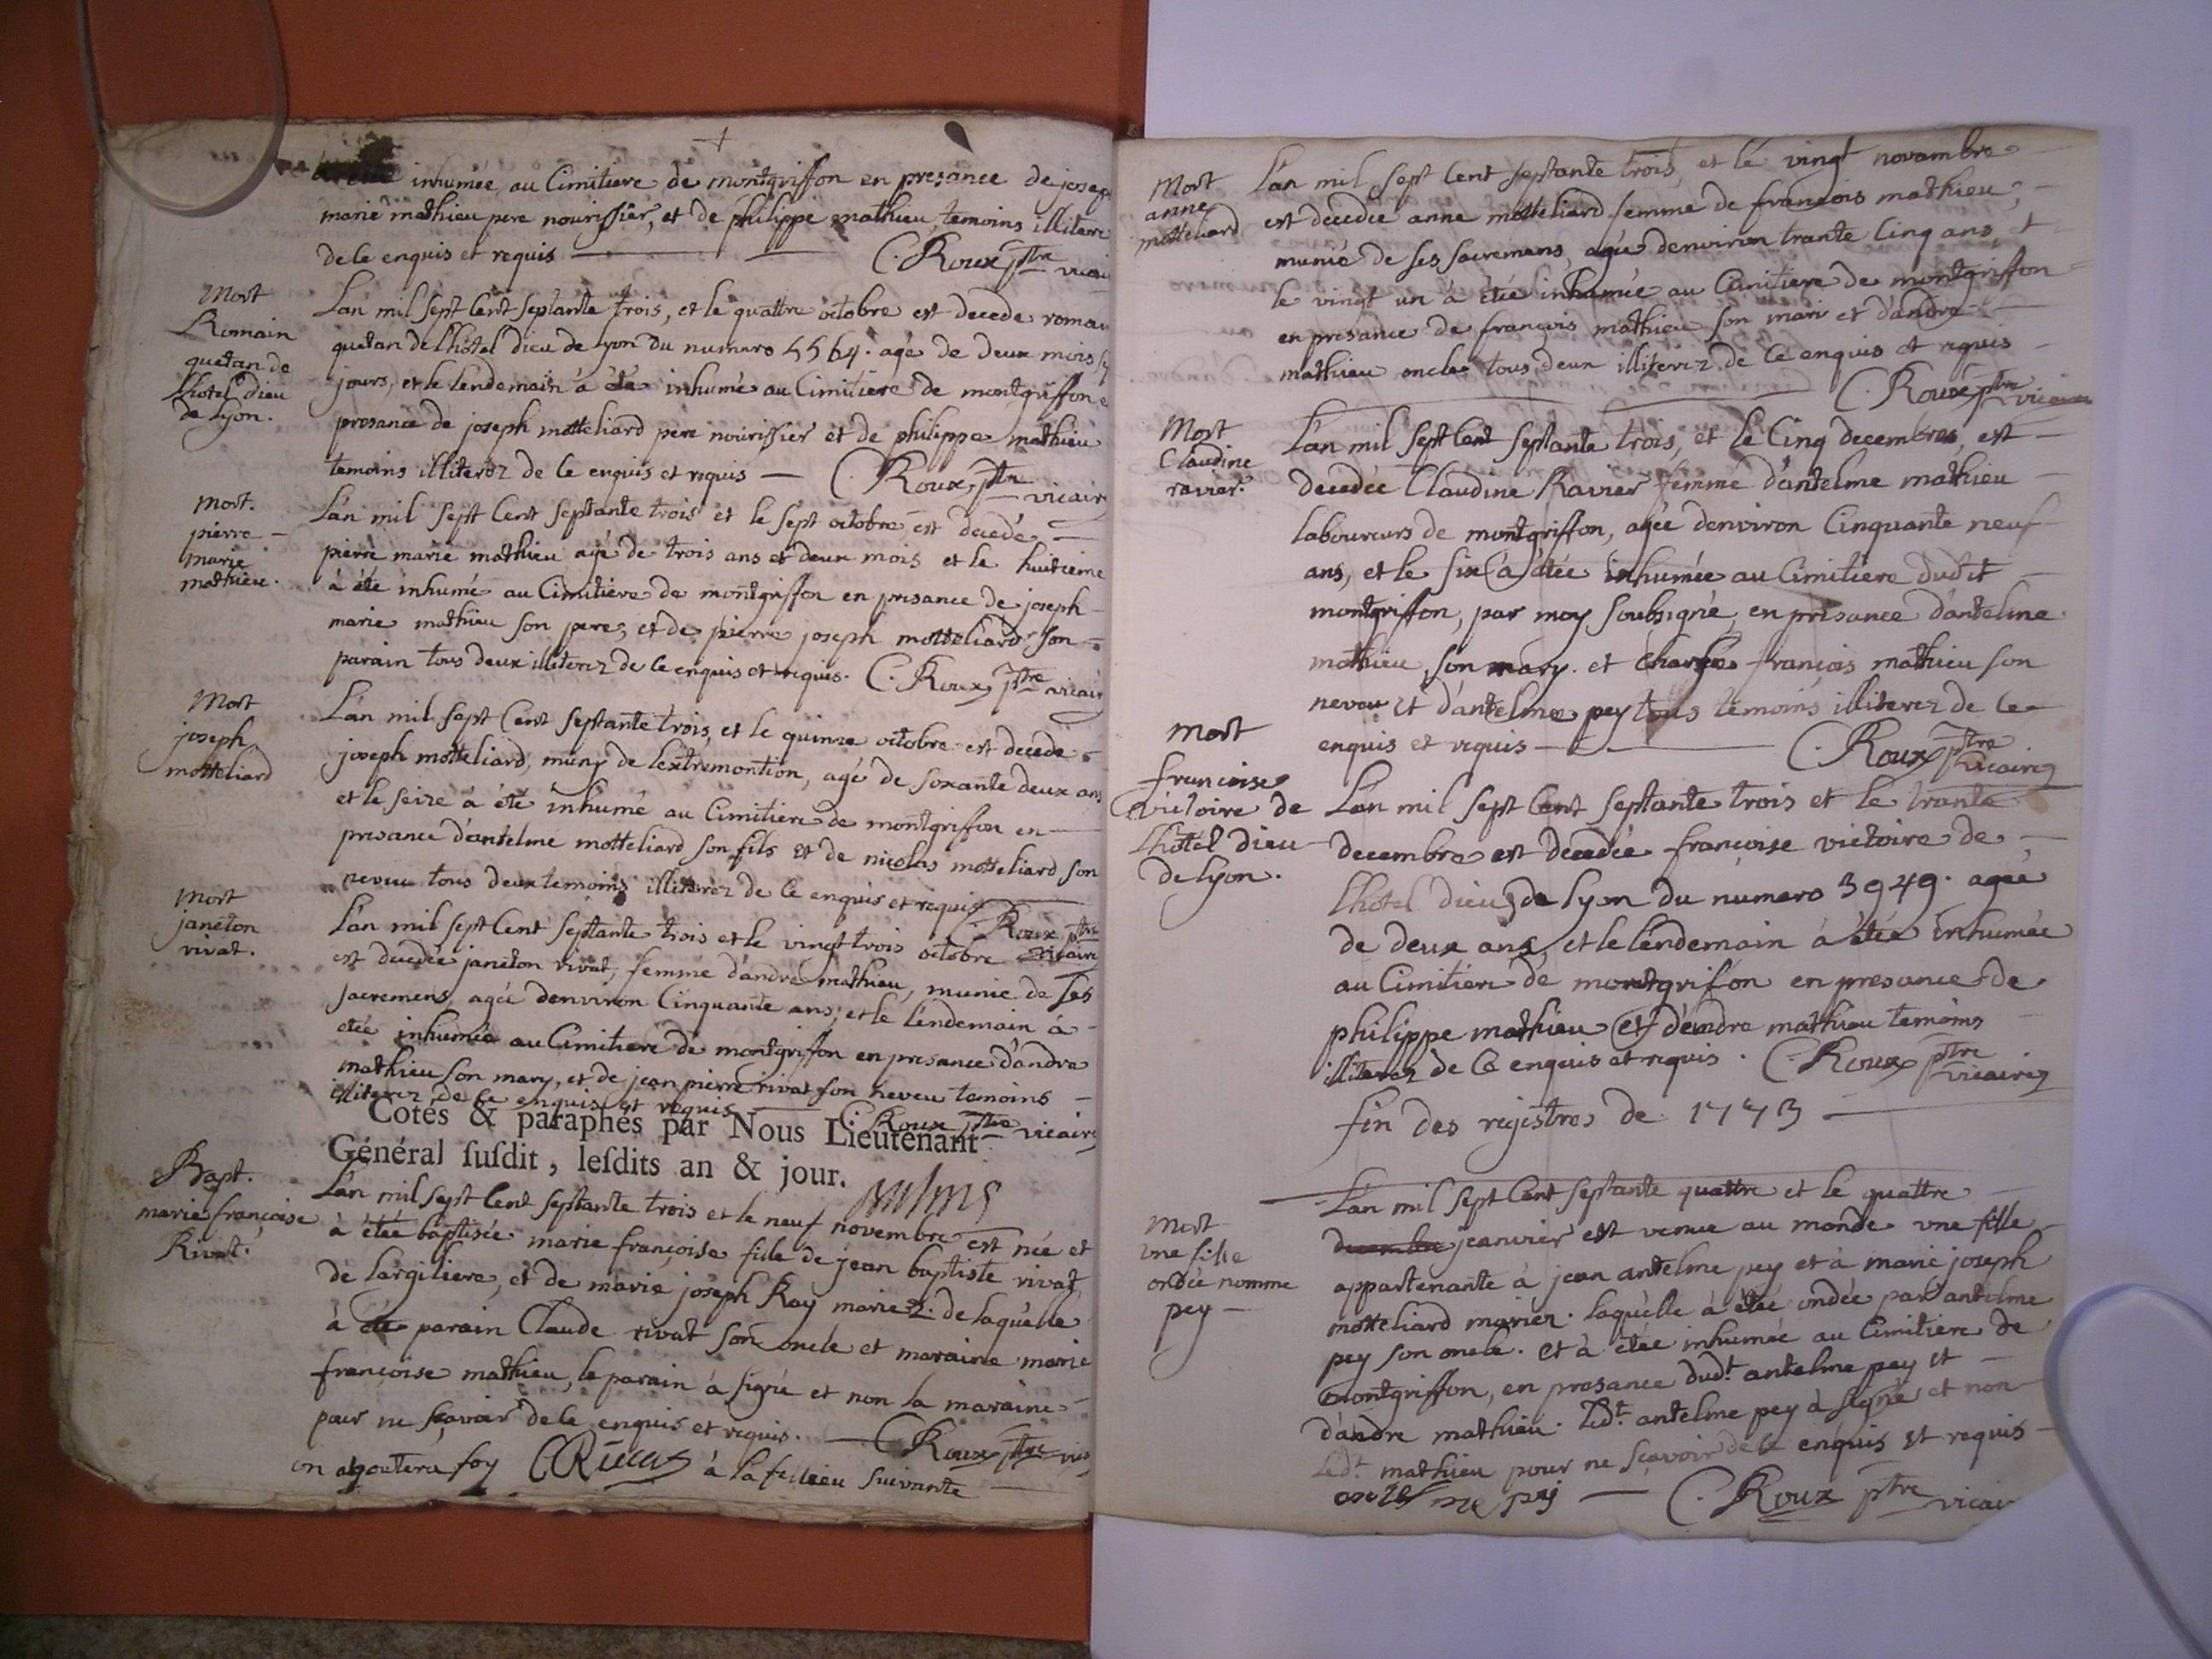 inhumée au Cimitiere de montgriffon en presance de josep
marie mathieu pere nourissier, et de philippe mathieu, temoins illitere
de ce enquis et requis C. Roux ptre vicai
Mort
Romain
quetan de
lhotel dieu
de lyon.
Lan mil sept Cent septante trois, et le quattre octobre est decede romain
quetan de lhôtel dieu de lyon du numero 5564. agé de deux mois
jours, et le lendemain à été inhumé au Cimitiere de montgriffon e
presance de joseph motteliard pere nourissier et de philippe mathieu
temoins illiterez de ce enquis et requis — C. Roux, ptre vicair
Mort.
pierre
marie
mathieu.
Lan mil sept Cent septante trois et le sept octobre est decedé
pierre marie mathieu agé de trois ans et deux mois et le huitieme
à été inhumé au Cimitiere de montgriffon en presance de joseph
marie mathieu son pere, et de pierre joseph motteliard son
parain tous deux illiterez de ce enquis et requis. C. Roux, ptre vicair
Mort
joseph
motteliard
Lan mil sept Cent septante trois, et le quinze octobre est decede
joseph motteliard, muny de lextremontion, agé de soxante deux ans
et le seize à été inhumé au Cimitiere de montgriffon en
presance d'antelme motteliard son fils et de nicolas motteliard son
neveu tous deux temoins illiterez de ce enquis et requis C. Roux ptre
vicair
Mort
janeton
rivat.
Lan mil sept Cent septante trois et le vingt trois octobre
est decedée janeton rivat, femme d'andré mathieu, munie de ses
sacremens, agée denviron Cinquante ans, et le lendemain à
etée inhumée au Cimitiere de montgriffon en presance d'andre
mathieu son mary, et de jean pierre rivat son neveu temoins
illiterez de ce enquis et requis C. Roux ptre vicaire
Cotés & paraphés par Nous Lieutenant
Général susdit, lesdits an & jour.
Bapt.
marie françoise
Rivat.
Lan mil sept Cent septante trois et le neuf novembre est née et
à étée baptisée marie françoise fille de jean baptiste rivat
de largiliere, et de marie joseph Ray mariez. de laquelle
à été parain Claude rivat son oncle et maraine marie
françoise mathieu, le parain à signé et non la maraine
pour ne sçavoir de ce enquis et requis. — C. Roux ptre vic
on ajoutera foy C Rivat à la feuillie suivante
Mort
anne
motteliard
Lan mil sept Cent septante trois, et le vingt novambre
est decedée anne motteliard femme de francois mathieu,
munie de ses sacremans, agée denviron trante Cinq ans, et
le vingt un à etée inhumée au Cimitiere de montgriffon
en presance de françois mathieu son mari et d'andre
mathieu oncle tous deux illiterez de ce enquis et requis
C. Roux ptre vicaire
Mort
Claudine
ravier.
Lan mil sept Cent septante trois, et le Cinq decembre, est
decedée Claudine Ravier femme d'antelme mathieu
laboureurs de montgriffon, agée denviron Cinquante neuf
ans, et le six à étée inhumée au Cimitiere dudit
montgriffon, par moy soubsigné, en presance d'antelme
mathieu son mary. et Charle françois mathieu son
neveu et d'antelme pey tous temoins illiterez de ce
enquis et requis — C. Roux ptre
vicaire
Mort
francoise
victoire de
lhôtel dieu
de lyon.
Lan mil sept Cent septante trois et le trante
decembre est decedée françoise victoire de
lhôtel dieu de lyon du numero 3949. agée
de deux ans, et le lendemain à étée inhumée
au Cimitiere de montgriffon en presance de
philippe mathieu et d'andre mathieu temoins
illiterez de ce enquis et requis. C. Roux ptre
vicaire
fin des registres de 1773
Mort
une fille
ondée nomme
pey
Lan mil sept Cent septante quattre et le quattre
decembre jeanvier est venue au monde une fille
appartenante à jean antelme pey et à marie joseph
motteliard mariez. laquelle à étée ondée par antelme
pey son oncle. et à étée inhumée au Cimitiere de
montgriffon, en presance dudt. antelme pey et
d'andre mathieu. Ledt. antelme pey à signé et non
Ledt. mathieu pour ne sçavoir de ce enquis et requis
C. Roux ptre vicair